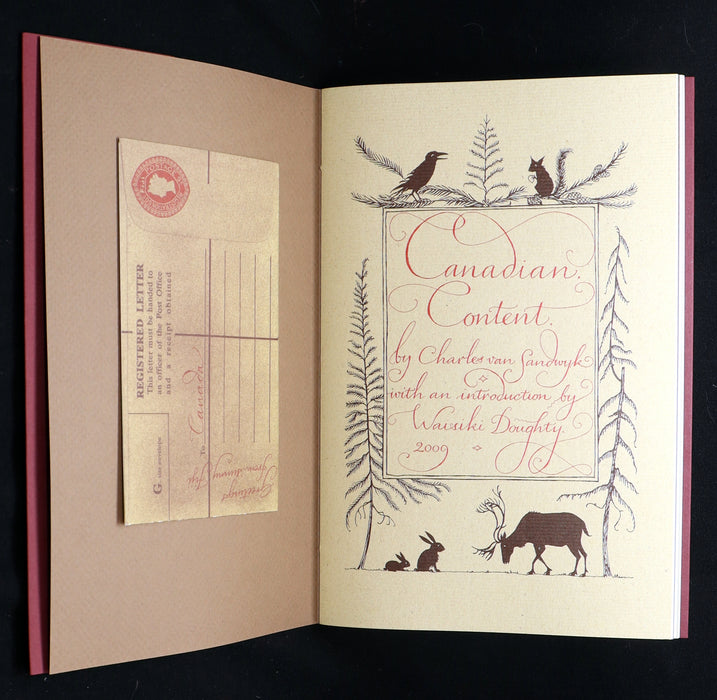 POSTAGE
REGISTERED LETTER
This letter must be handed to
an officer of the Post Office
and a receipt obtained
G
To Canada
Greetings
from sunny Fiji
Canadian.
Content.
by Charles van Sandwyk
with an introduction by
Waisiki Doughty.
2009